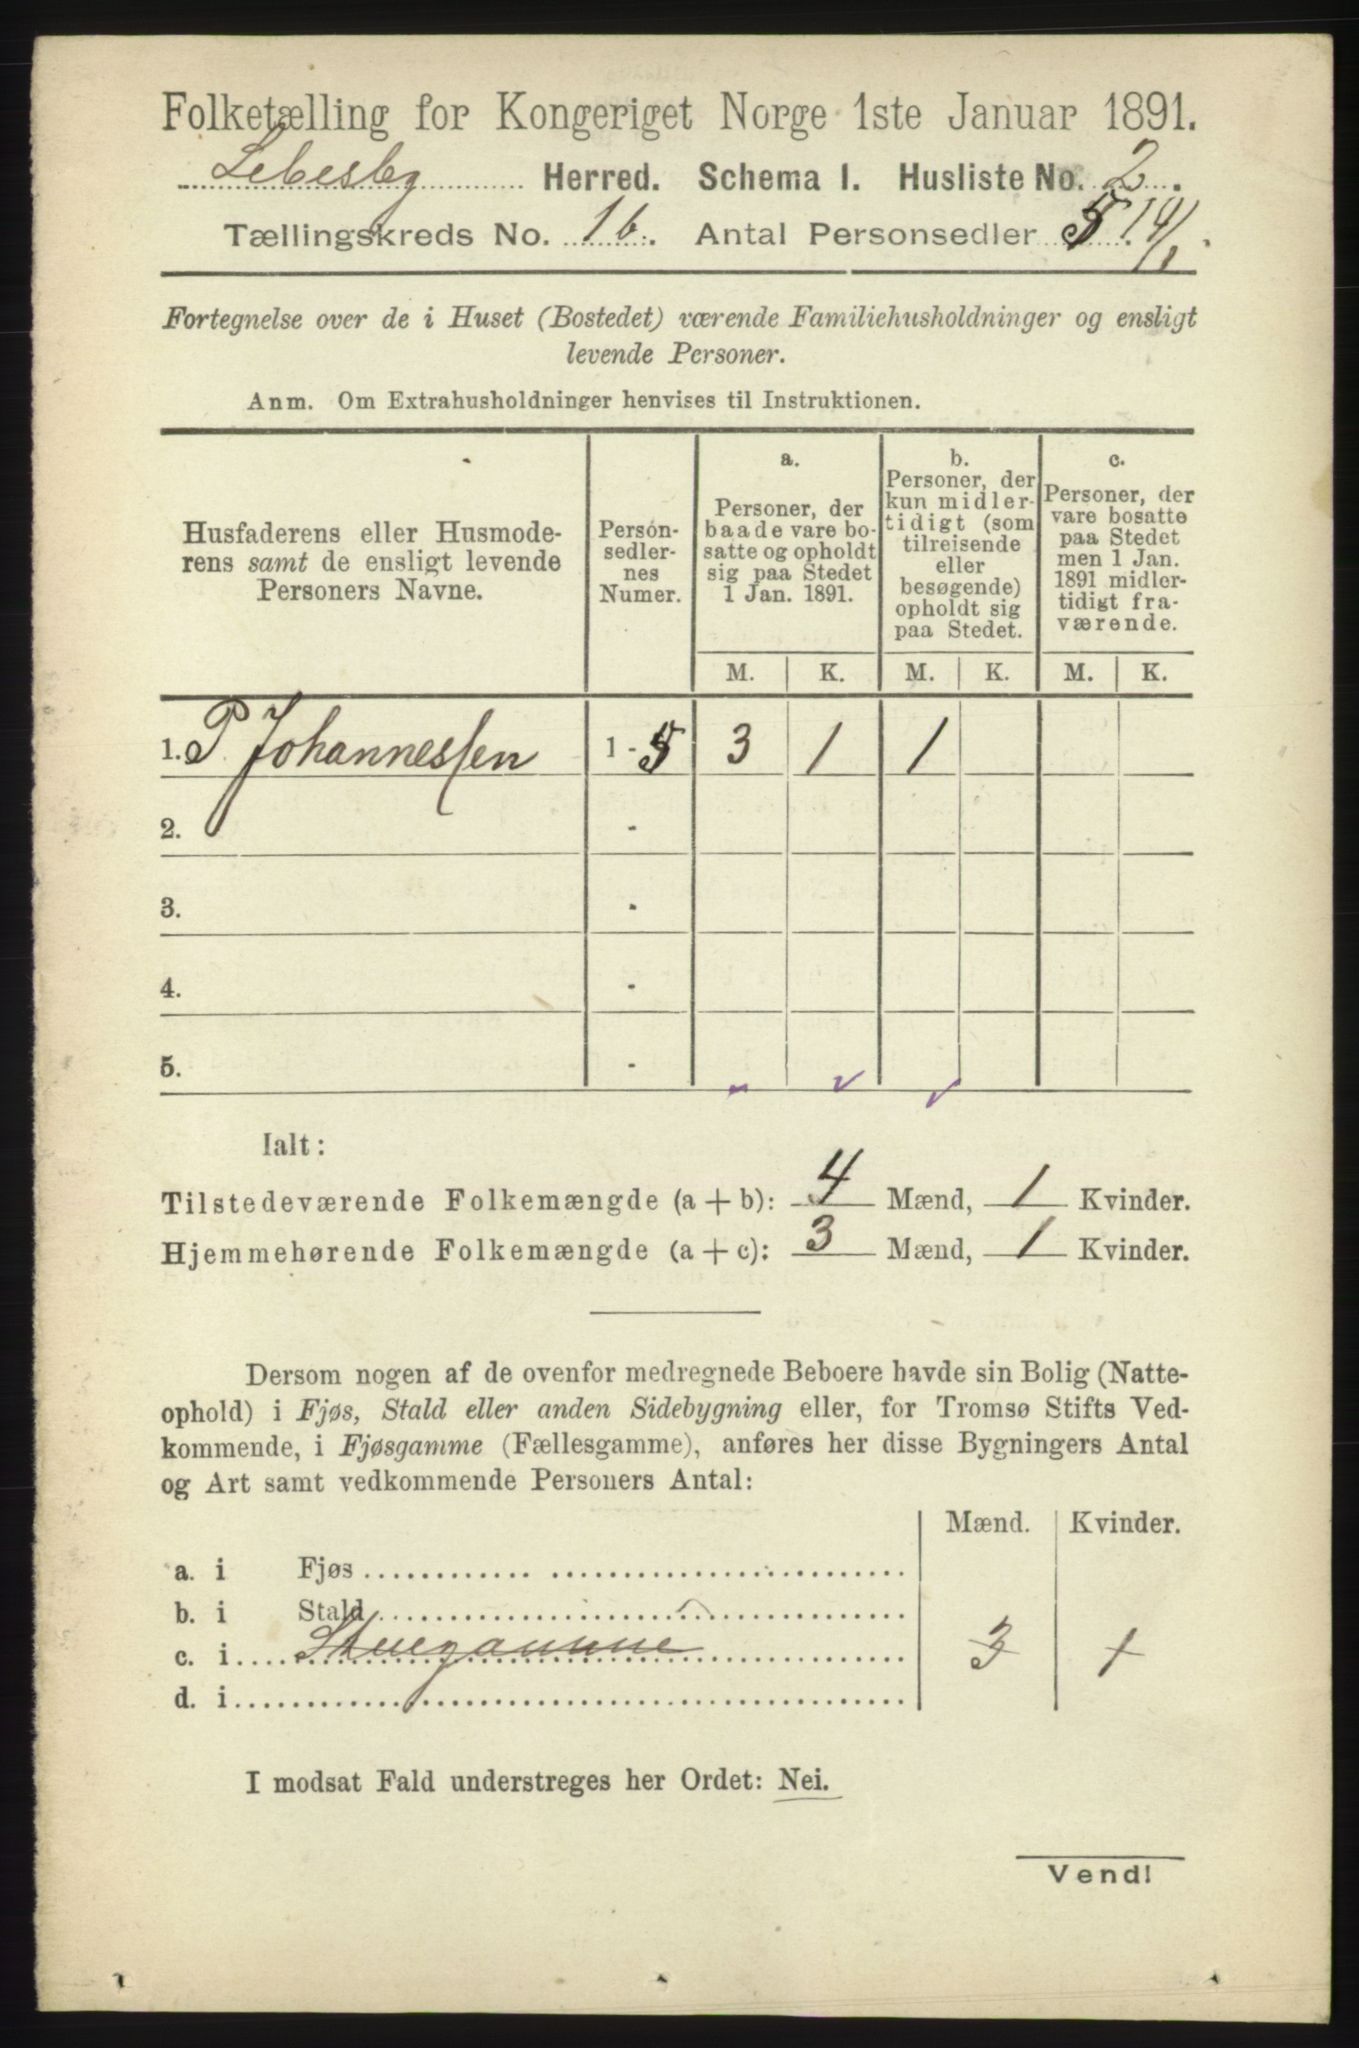 Folketælling for Kongeriget Norge 1ste Januar 1891.
Lebesby Herred. Schema I. Husliste No. 2.
Tællingskreds No. 16. Antal Personsedler 5
Fortegnelse over de i Huset (Bostedet) værende Familiehusholdninger og ensligt
levende Personer.
Anm. Om Extrahusholdninger henvises til Instruktionen.
Husfaderens eller Husmode-
rens samt de ensligt levende
Personers Navne.
Person-
sedler-
nes
Numer.
a.
Personer, der
baade vare bo-
satte og opholdt
sig paa Stedet
1 Jan. 1891.
b.
Personer, der
kun midler-
tidigt (som
tilreisende
eller
besøgende)
opholdt sig
paa Stedet.
c.
Personer, der
vare bosatte
paa Stedet
men 1 Jan.
1891 midler-
tidigt fra-
værende.
M. K. M. K. M. K.
1. P. Johannessen 1 - 5 3 1 1
2. -
3. -
4. -
5. -
Ialt:
Tilstedeværende Folkemængde (a + b): 4 Mænd, 1 Kvinder.
Hjemmehørende Folkemængde (a + c): 3 Mænd, 1 Kvinder.
Dersom nogen af de ovenfor medregnede Beboere havde sin Bolig (Natte-
ophold) i Fjøs, Stald eller anden Sidebygning eller, for Tromsø Stifts Ved-
kommende, i Fjøsgamme (Fællesgamme), anføres her disse Bygningers Antal
og Art samt vedkommende Personers Antal:
Mænd. Kvinder.
a. i Fjøs
b. i Stald
c. i Stuegamme 3 1
d. i
I modsat Fald understreges her Ordet: Nei.
Vend!